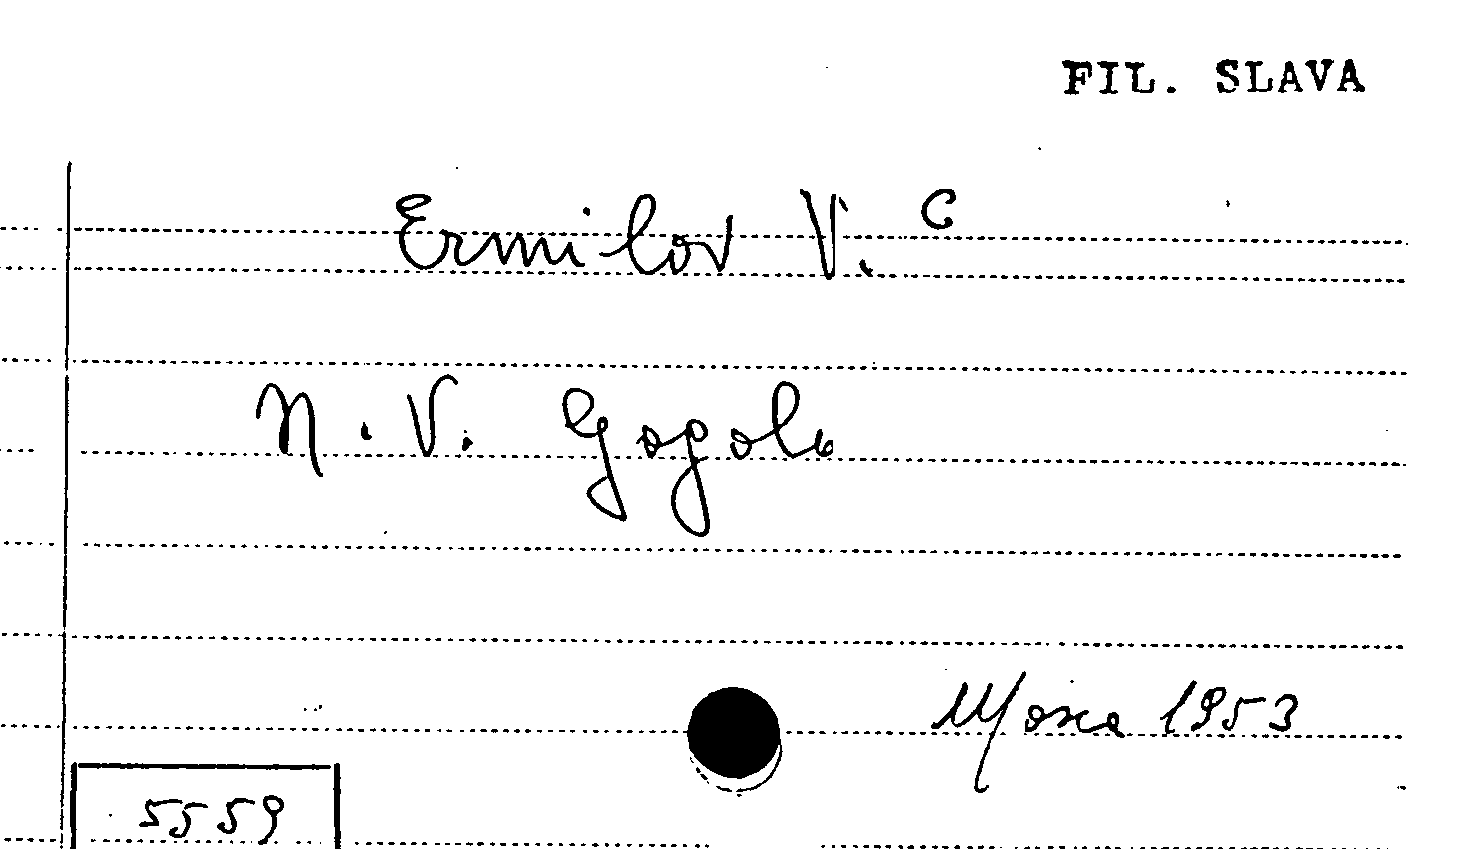 FIL. SLAVA
Ermilov V. C
N. V. Gogolь
Mosca 1953
5559